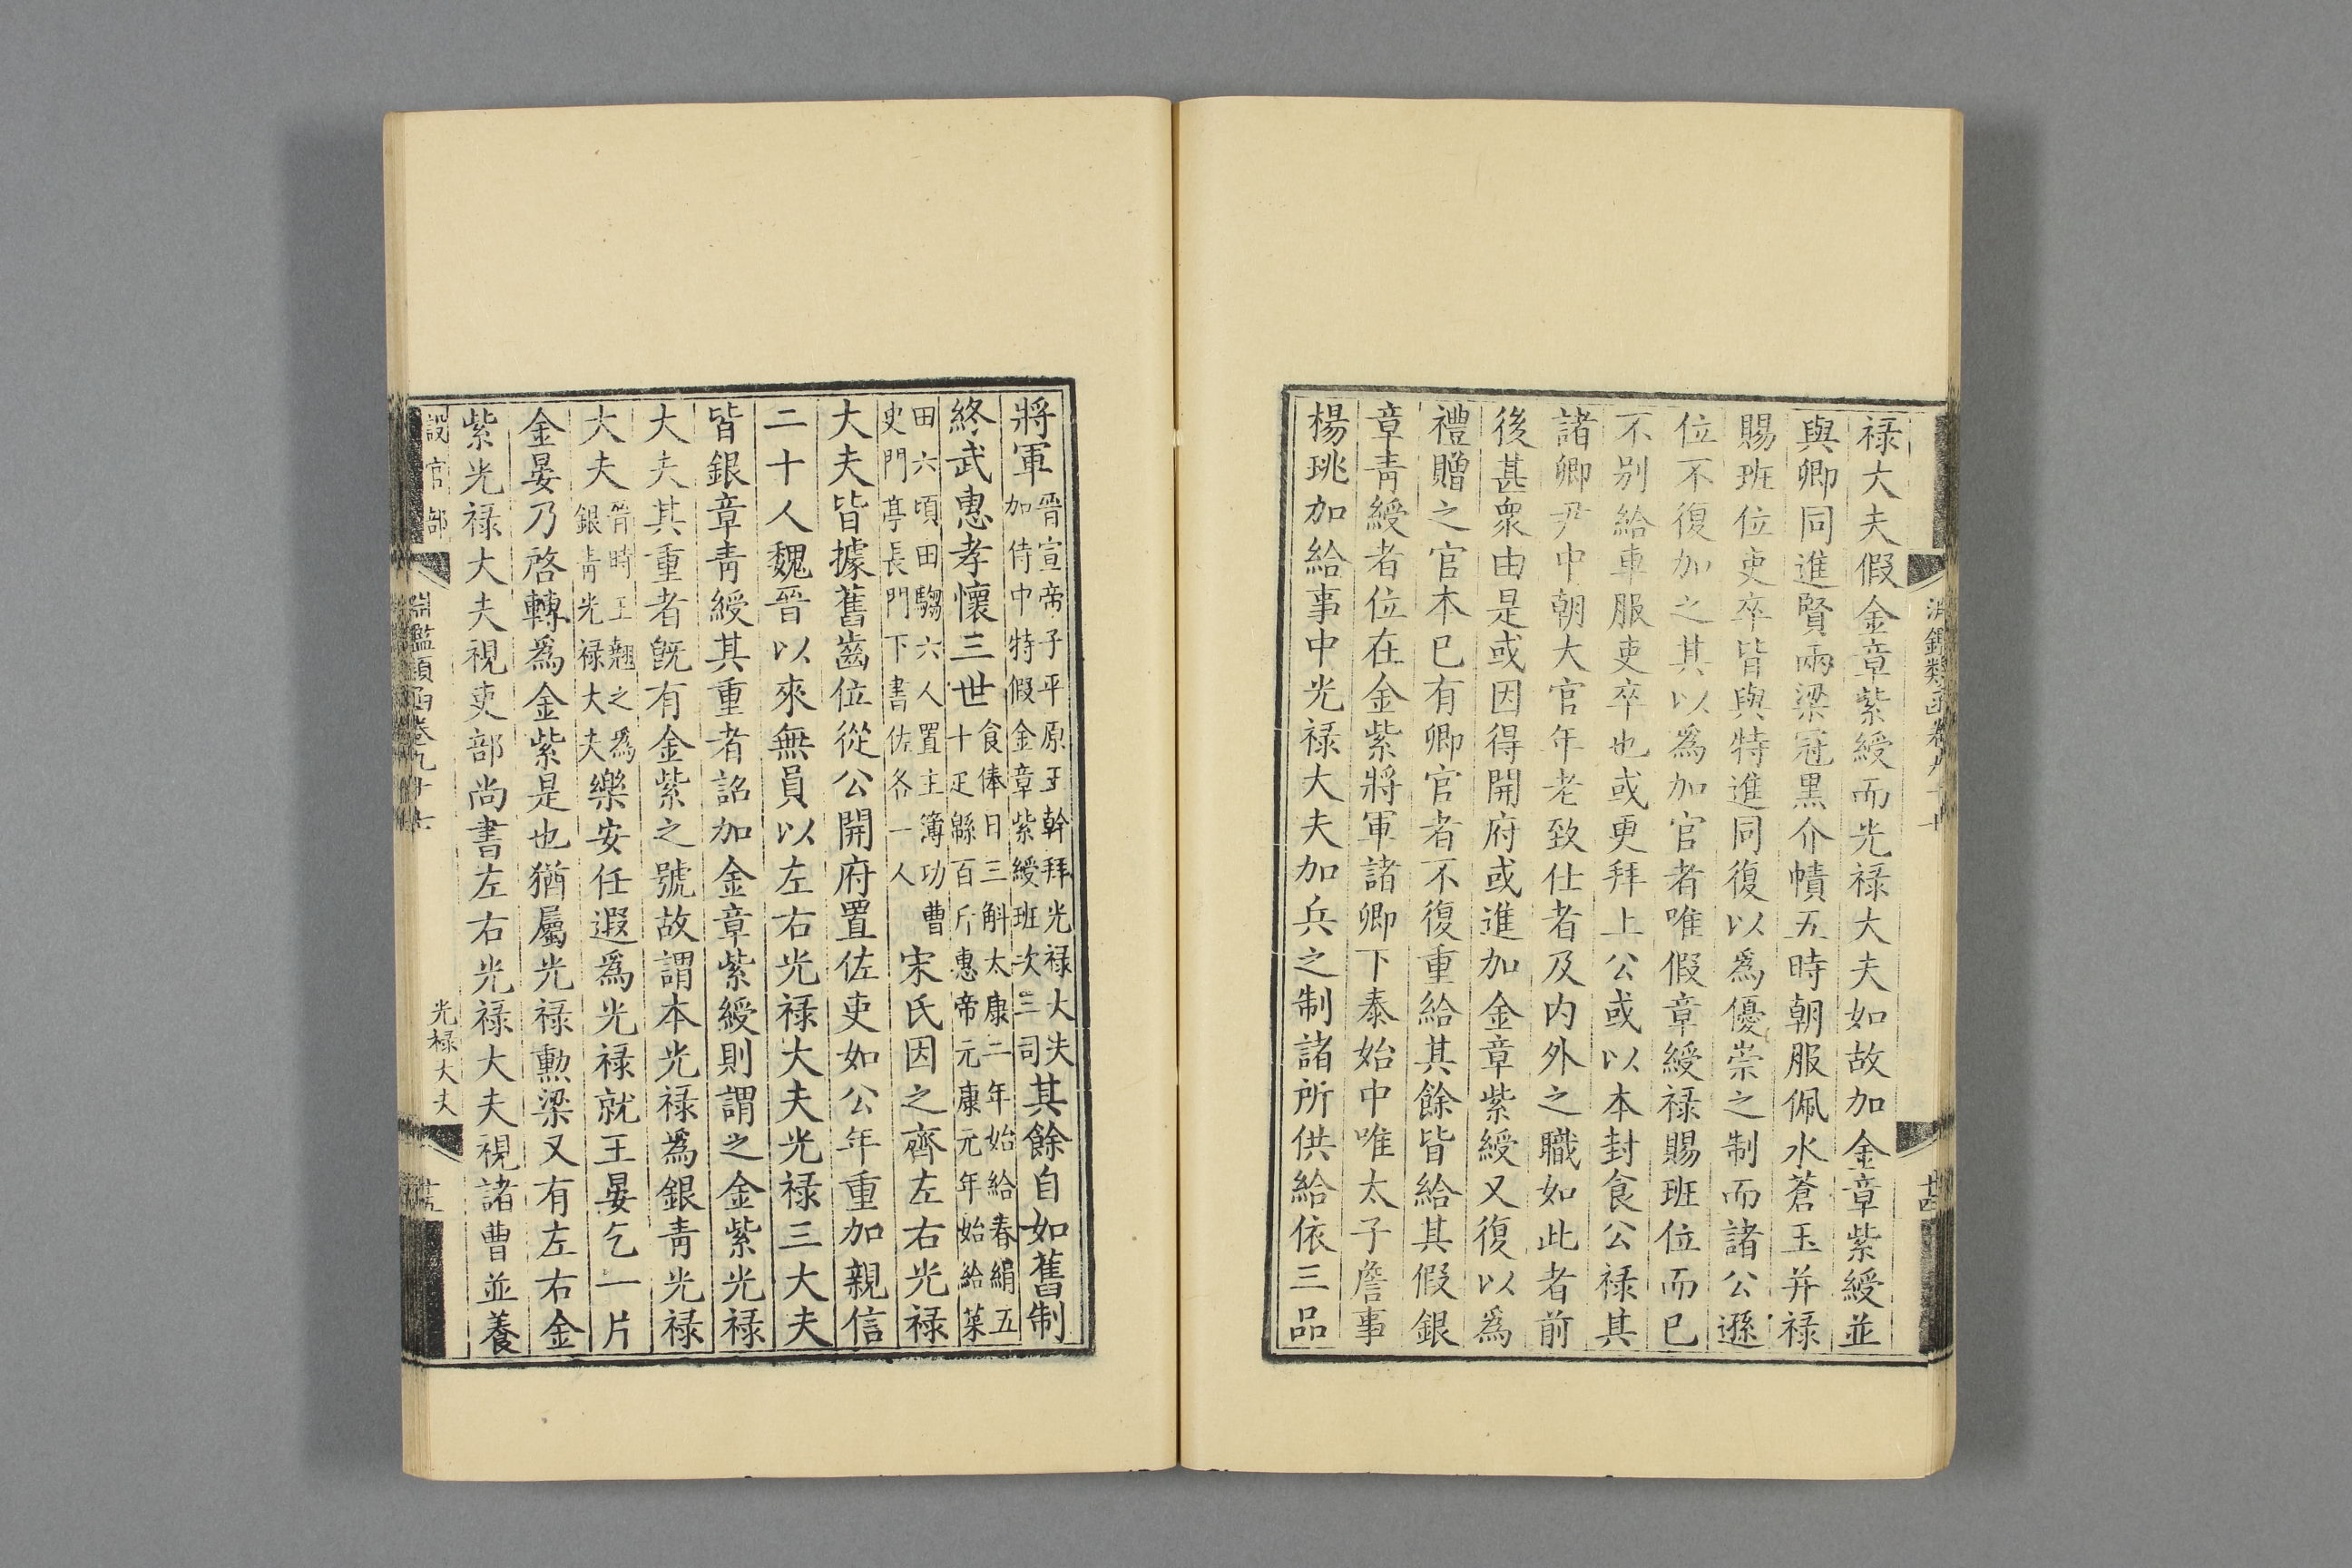 祿大夫假金章紫綬而光祿大夫如故加金章紫綬並
與卿同進賢兩梁冠黒介幘五時朝服佩水蒼玉并祿
賜班位吏卒皆與特進同復以爲優崇之制而諸公遜
位不復加之其以爲加官者唯假章綬祿賜班位而已
不别給車服吏卒也或更拜上公或以本封食公祿其
諸卿尹中朝大官年老致仕者及内外之職如此者前
後甚衆由是或因得開府或進加金章紫綬又復以爲
禮贈之官本已有卿官者不復重給其餘皆給其假銀
章青綬者位在金紫將軍諸卿下泰始中唯太子詹事
楊珧加給事中光祿大夫加兵之制諸所供給依三品
將軍
晉宣帝子平原王幹拜光祿大夫
加侍中特假金章紫綬班次三司
其餘自如舊制
終武惠孝懷三世
食俸日三斛太康二年始給春絹五
十疋緜百斤惠帝元康元年始給菜
田六頃田騶六人置主簿功曹
史門亭長門下書佐各一人
宋氏因之齊左右光祿
大夫皆據舊齒位從公開府置佐吏如公年重加親信
二十人魏晉以來無員以左右光祿大夫光祿三大夫
皆銀章青綬其重者詔加金章紫綬則謂之金紫光祿
大夫其重者既有金紫之號故謂本光祿爲銀青光祿
大夫
晉時王翹之爲
銀青光祿大夫
樂安任遐爲光祿就王晏乞一片
金晏乃啓轉爲金紫是也猶屬光祿勲梁又有左右金
紫光祿大夫視吏部尚書左右光祿大夫視諸曹並養
設官部
淵鑑類函卷九十七
光祿大夫